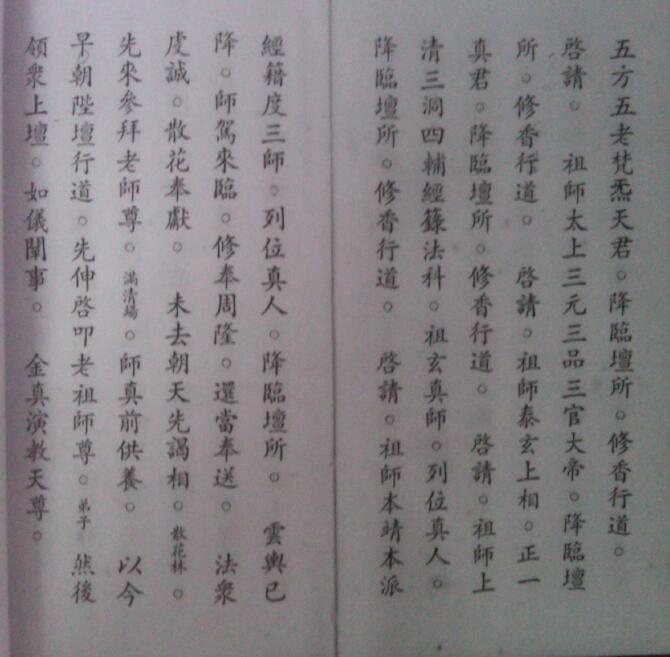 五方五老梵炁天君。降臨壇所。修香行道。
啓請。　祖師太上三元三品三官大帝。降臨壇
所。修香行道。　啓請。祖師泰玄上相。正一
真君。降臨壇所。修香行道。　啓請。祖師上
清三洞四輔經籙法科。祖玄真師。列位真人。
降臨壇所。修香行道。　啓請。祖師本靖本派
經籍度三師。列位真人。降臨壇所。　雲輿已
降。師駕來臨。修奉周隆。還當奉送。　法衆
虔誠。散花奉獻。　未去朝天先謁相。散花林。
先來參拜老師尊。滿清場。師真前供養。　以今
早朝陞壇行道。先伸啓叩老祖師尊。弟子　然後
領衆上壇。如儀闡事。　金真演教天尊。